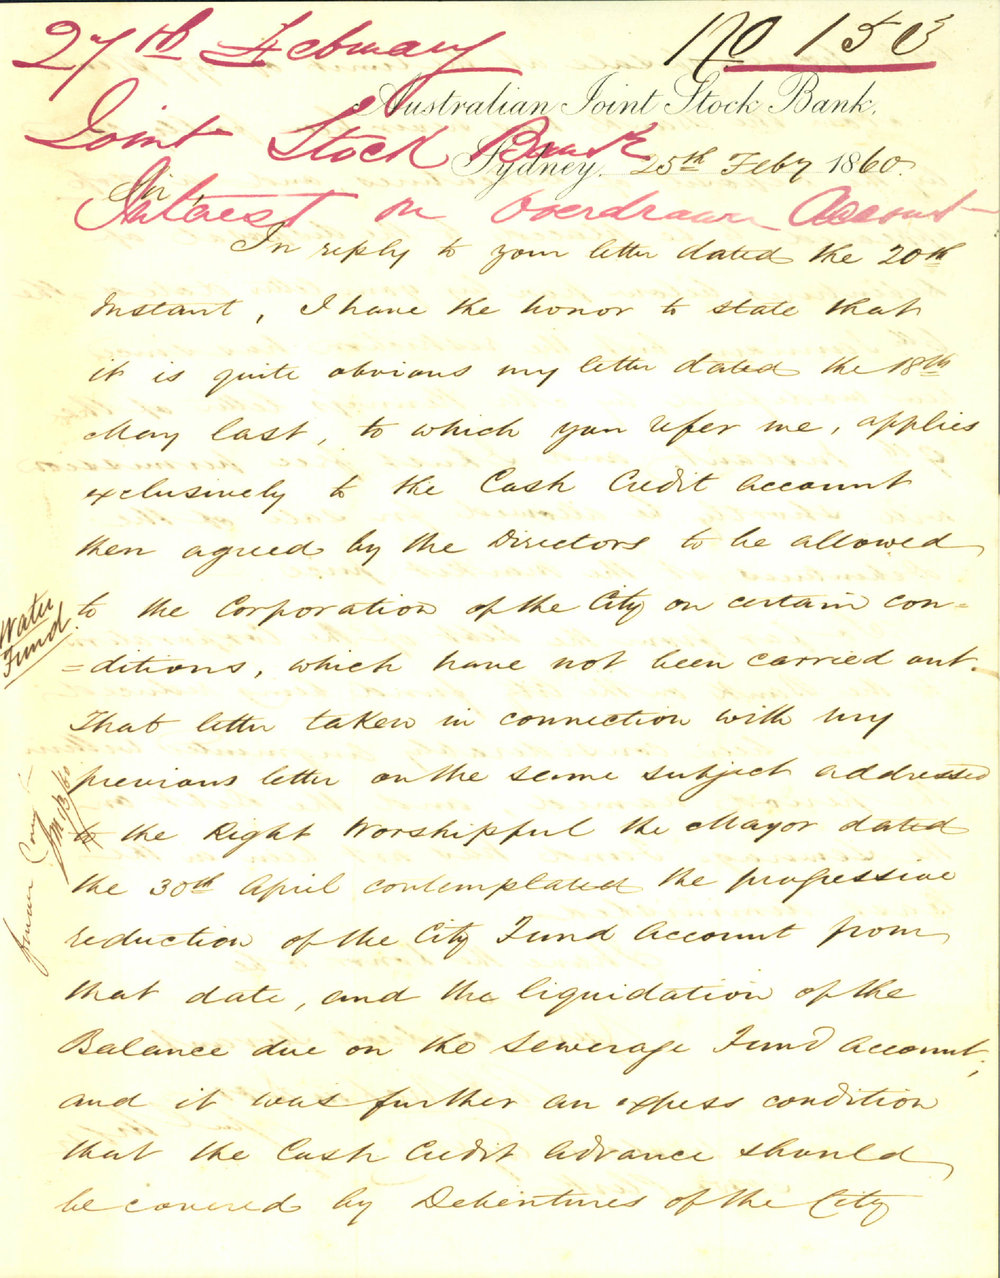 27th February
No 153
Australian Joint Stock Bank,
Joint Stock Bank
Sydney. 25th Feby 1860.
Sir,
Interest on Overdrawn Account
In reply to your letter dated the 20th
Instant, I have the honor to state that
it is quite obvious my letter dated the 18th
May last, to which you refer me, applies
exclusively to the Cash Credit Account
then agreed by the Directors to be allowed
to the Corporation of the City on certain con=
=ditions, which have not been carried out.
That letter taken in connection with my
previous letter on the same subject addressed
to the Right Worshipful the Mayor dated
the 30th April contemplated the progressive
reduction of the City Fund Account from
that date, and the liquidation of the
Balance due on the Sewerage Fund Account,
and it was further an express condition
that the Cash Credit Advance should
be covered by Debentures of the City
Water
Fund
1/3/60